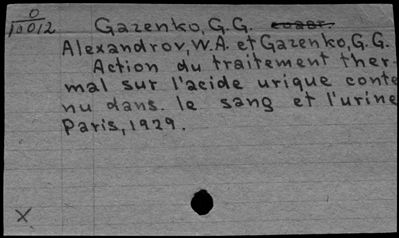 0
10012
Gazenko, G.G. соавт.
Alexandrov, W.A. et Gazenko, G.G.
Action du traitement ther-
mal sur l'acide urique conte
nu dans le sang et l'urine
Paris, 1929.
X